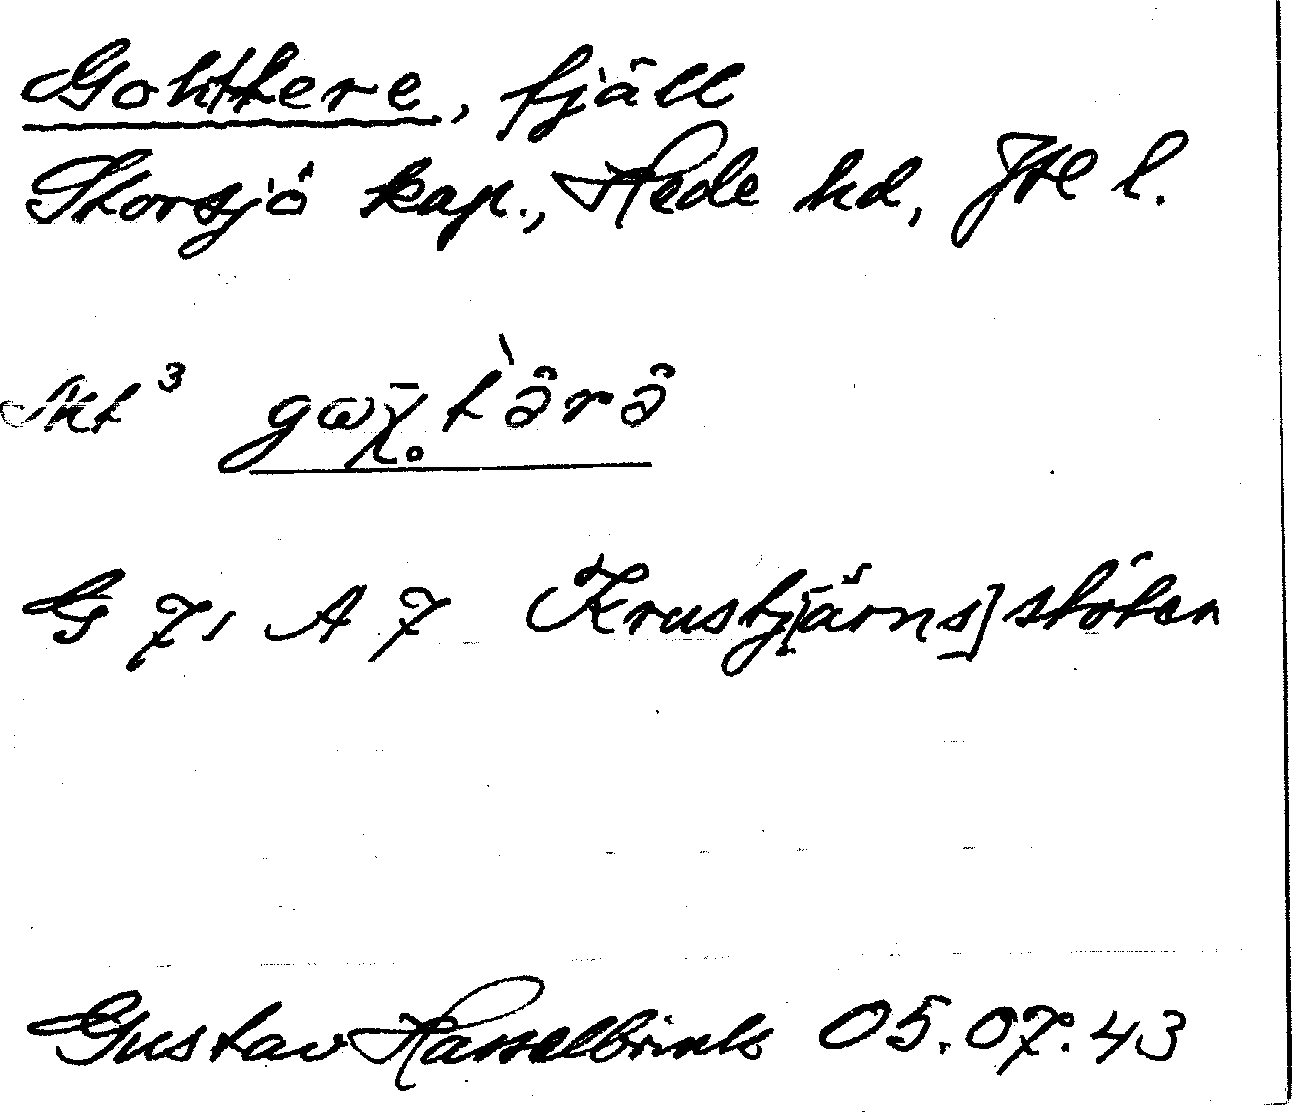 Gohttere, fjäll
Storsjö kap., Hede hd, Jtl l.
Skt³ gωχ̄.tə̂rə̂
G 7, A 7 Krustj[ärns]stöten
Gustav Hasselbrink 05.07.43